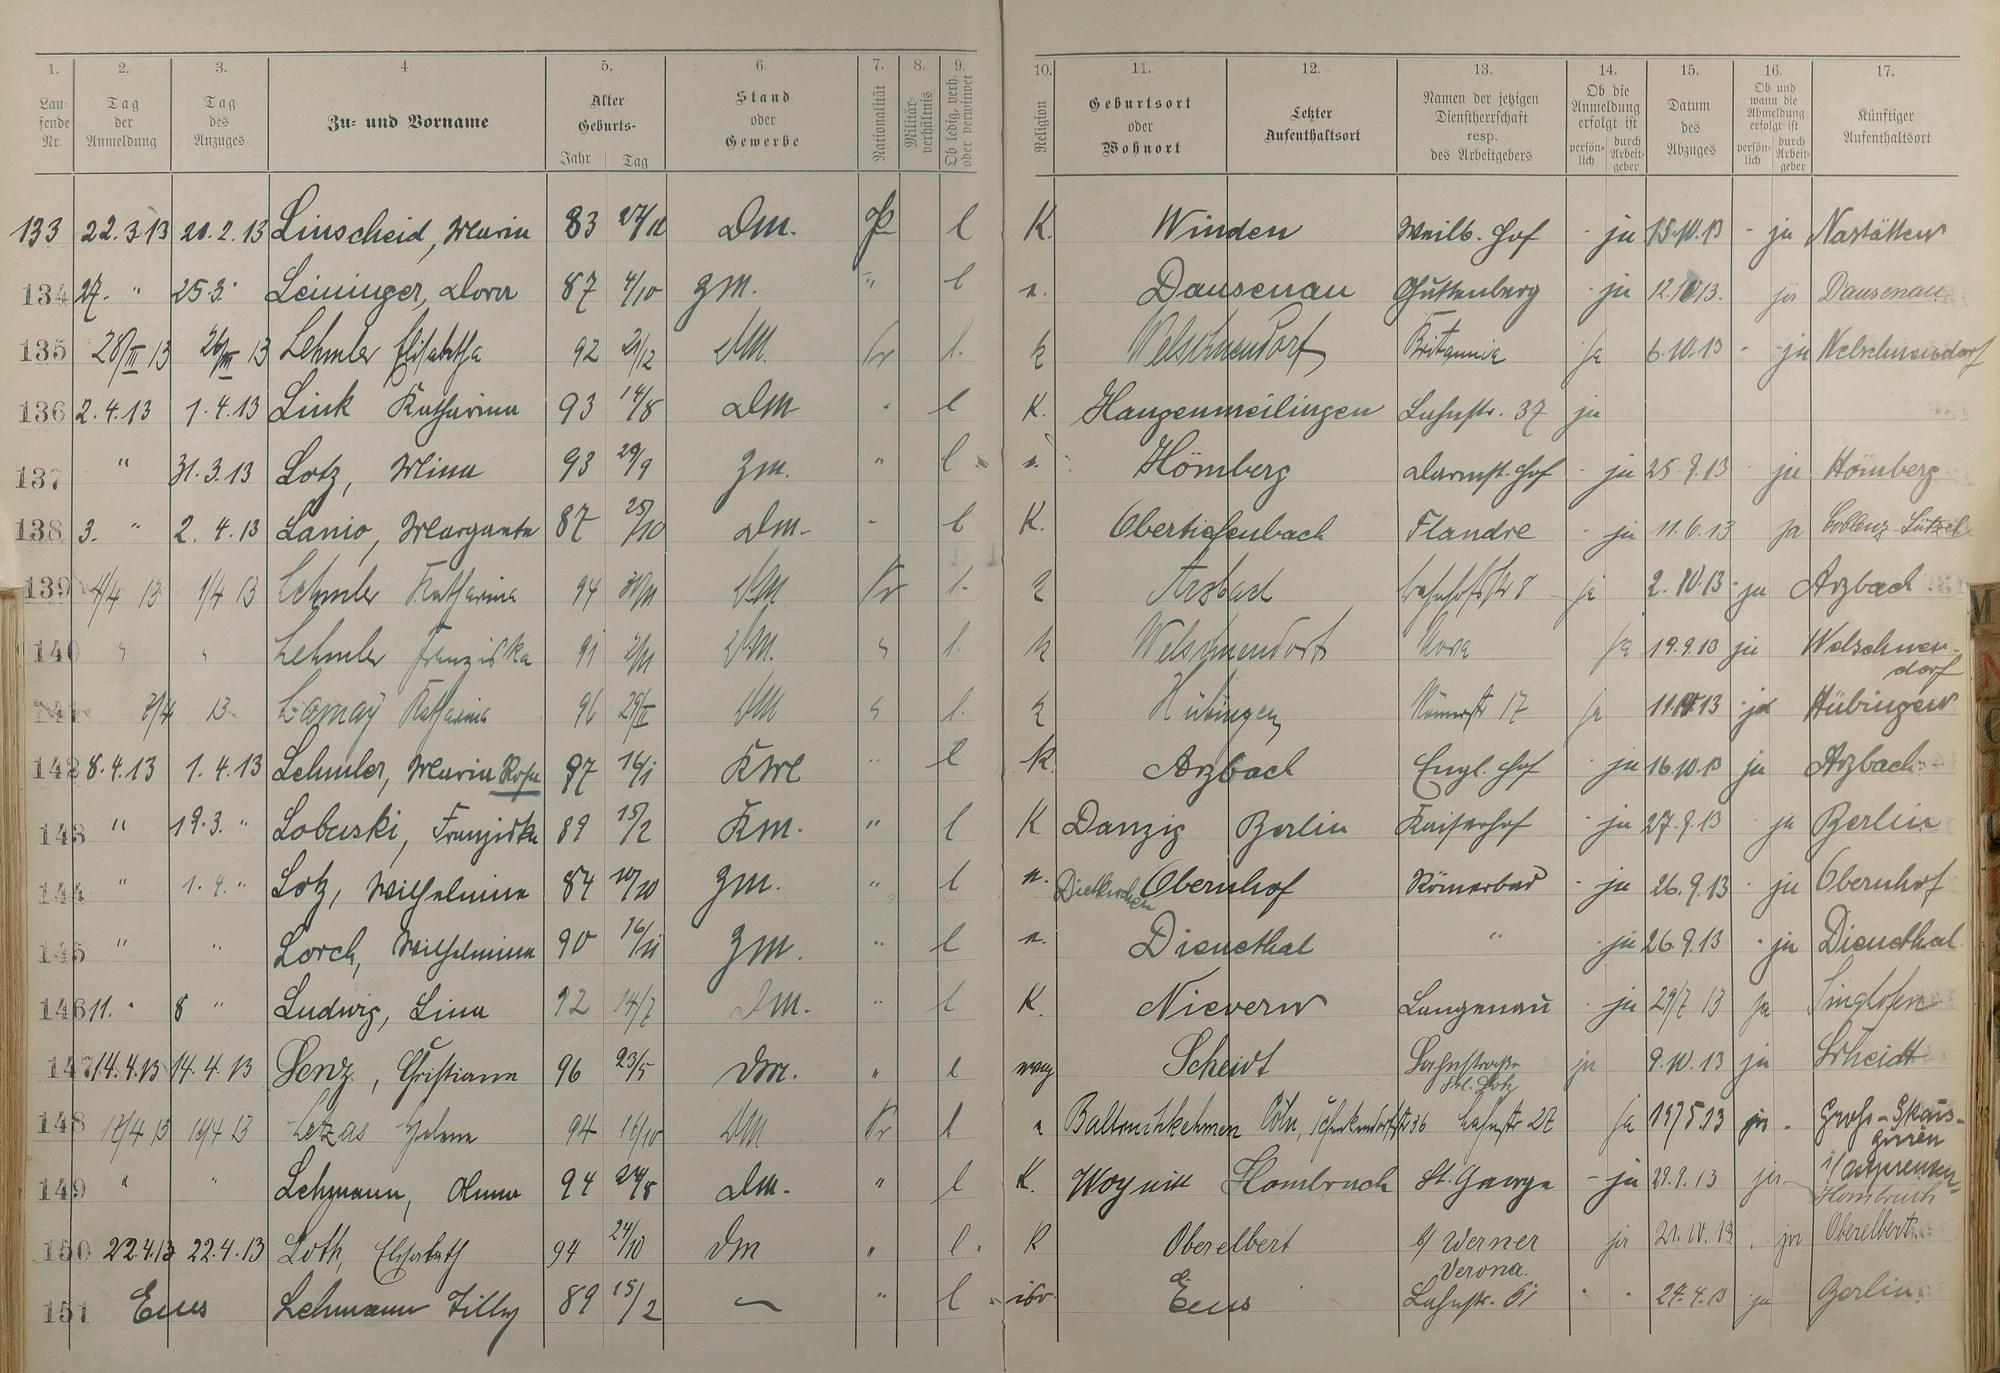 1. 2. 3. 4. 5. 6. 7. 8. 9. 10. 11. 12. 13. 14. 15. 16. 17.
Lau-
fende
Nr.
Tag
der
Anmeldung
Tag
des
Anzuges
Zu- und Vorname
Alter
Geburts-
Jahr Tag
Stand
oder
Gewerbe
Nationalität
Militär-
verhältnis
Ob ledig, verh.
oder verwitwet
Religion
Geburtsort
oder
Wohnort
Letzter
Aufenthaltsort
Namen der jetzigen
Dienstherrschaft
resp.
des Arbeitgebers
Ob die
Anmeldung
erfolgt ist
persön-
lich
durch
Arbeit-
geber
Datum
des
Abzuges
Ob und
wann die
Abmeldung
erfolgt ist
persön-
lich
durch
Arbeit-
geber
Künftiger
Aufenthaltsort
133 22.3.13 20.2.13 Linscheid, Maria 83 27/11 Dm. Pr l K. Winden Weilb. Hof - ja 15.10.13 - ja Nastätten
134 27. " 25.3. Leininger, Dora 87 4/10 Zm. " l e. Dausenau Guttenberg - ja 12.10.13. ja Dausenau
135 28/III 13 26/III 13 Lehmler Elisabetha 92 21/12 DM. Pr l. k Welschneudorf Britannia ja 6.10.13 - ja Welschneudorf
136 2.4.13 1.4.13 Link Katharina 93 14/8 Dm " l K. Hangenmeilingen Lahnstr. 37 ja
137 " 31.3.13 Lotz, Mina 93 29/9 Zm. " l e. Hömberg Darmst. Hof - ja 25.9.13 ja Hömberg
138 3. " 2.4.13 Lanio, Margareta 87 25/10 Dm. " l K. Obertiefenbach Flandre - ja 11.6.13 ja Coblenz-Lützel
139 4/4 13 1/4 13 Lehmler Katharina 94 30/11 DM Pr l. k Arzbach Bahnhofstr 8 ja 2.10.13 - ja Arzbach
140 " " Lehmler Franziska 91 2/11 DM. " l. k Welschneudorf Nova ja 19.9.13 ja Welschneu-
dorf
141 7/4 13 Lamay Katharina 96 29/II DM " l. k Hübingen Römerstr 17 ja 11.10.13 ja Hübingen
142 8.4.13 1.4.13 Lehmler, Maria Rosa 97 16/1 " l k. Arzbach Engl. Hof - ja 16.10.13 ja Arzbach
143 " 19.3. " Lobuski, Franziska 89 15/2 Km. " l K Danzig Berlin Kaiserhof - ja 27.9.13 ja Berlin
144 " 1.4. " Lotz, Wilhelmine 84 10/10 Zm. " l e. Dietkirchen Obernhof Römerbad - ja 26.9.13 - ja Obernhof
145 " " Lorch, Wilhelmina 90 16/11 Zm. " l e. Dienethal " - ja 26.9.13 - ja Dienethal
146 11. " 8 " Ludwig, Lina 92 14/7 Dm. " l K. Nievern Langenau - ja 29/7 13 ja Singhofen
147 14.4.13 14.4.13 Lenz, Christiane 96 23/5 Dm. " l evang Scheidt Lahnstraße ja 9.10.13 ja Scheidt
148 Letzas Helene 94 16/10 DM Pr l e Cöln, Schenkendorfstr 36 Lahnstr 27 ja 15/5.13 ja - Groß-Skais-
girren
149 " " Lehmann, Anna 94 24/8 Dm. " l K. Hombruch St. George - ja 29.9.13 ja i/Ostpreussen
Hombruch
150 22.4.13 22.4.13 Loth, Elisabeth 94 24/10 Dm " l. K Oberelbert Werner
Verona. ja 21.10.13. ja Oberelbert
151 Ems Lehmann Tilly 89 15/2 " l isr. Ems Lahnstr. 61 " " 24.4.13 ja Berlin